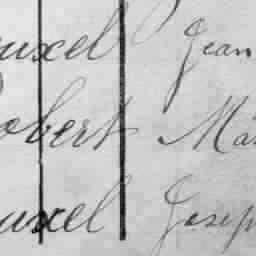 uxel Jean
obert Ma
uxel Josep